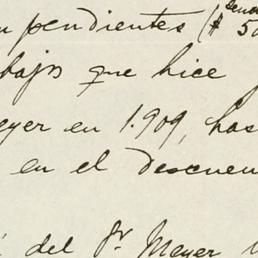 n pendientes ($ 50
bajos que hice
eyer en 1.909, has
en el descuen
del Sr Meyer